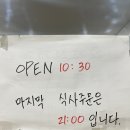 OPEN 10:30
마지막 식사주문은
21:00 입니다.